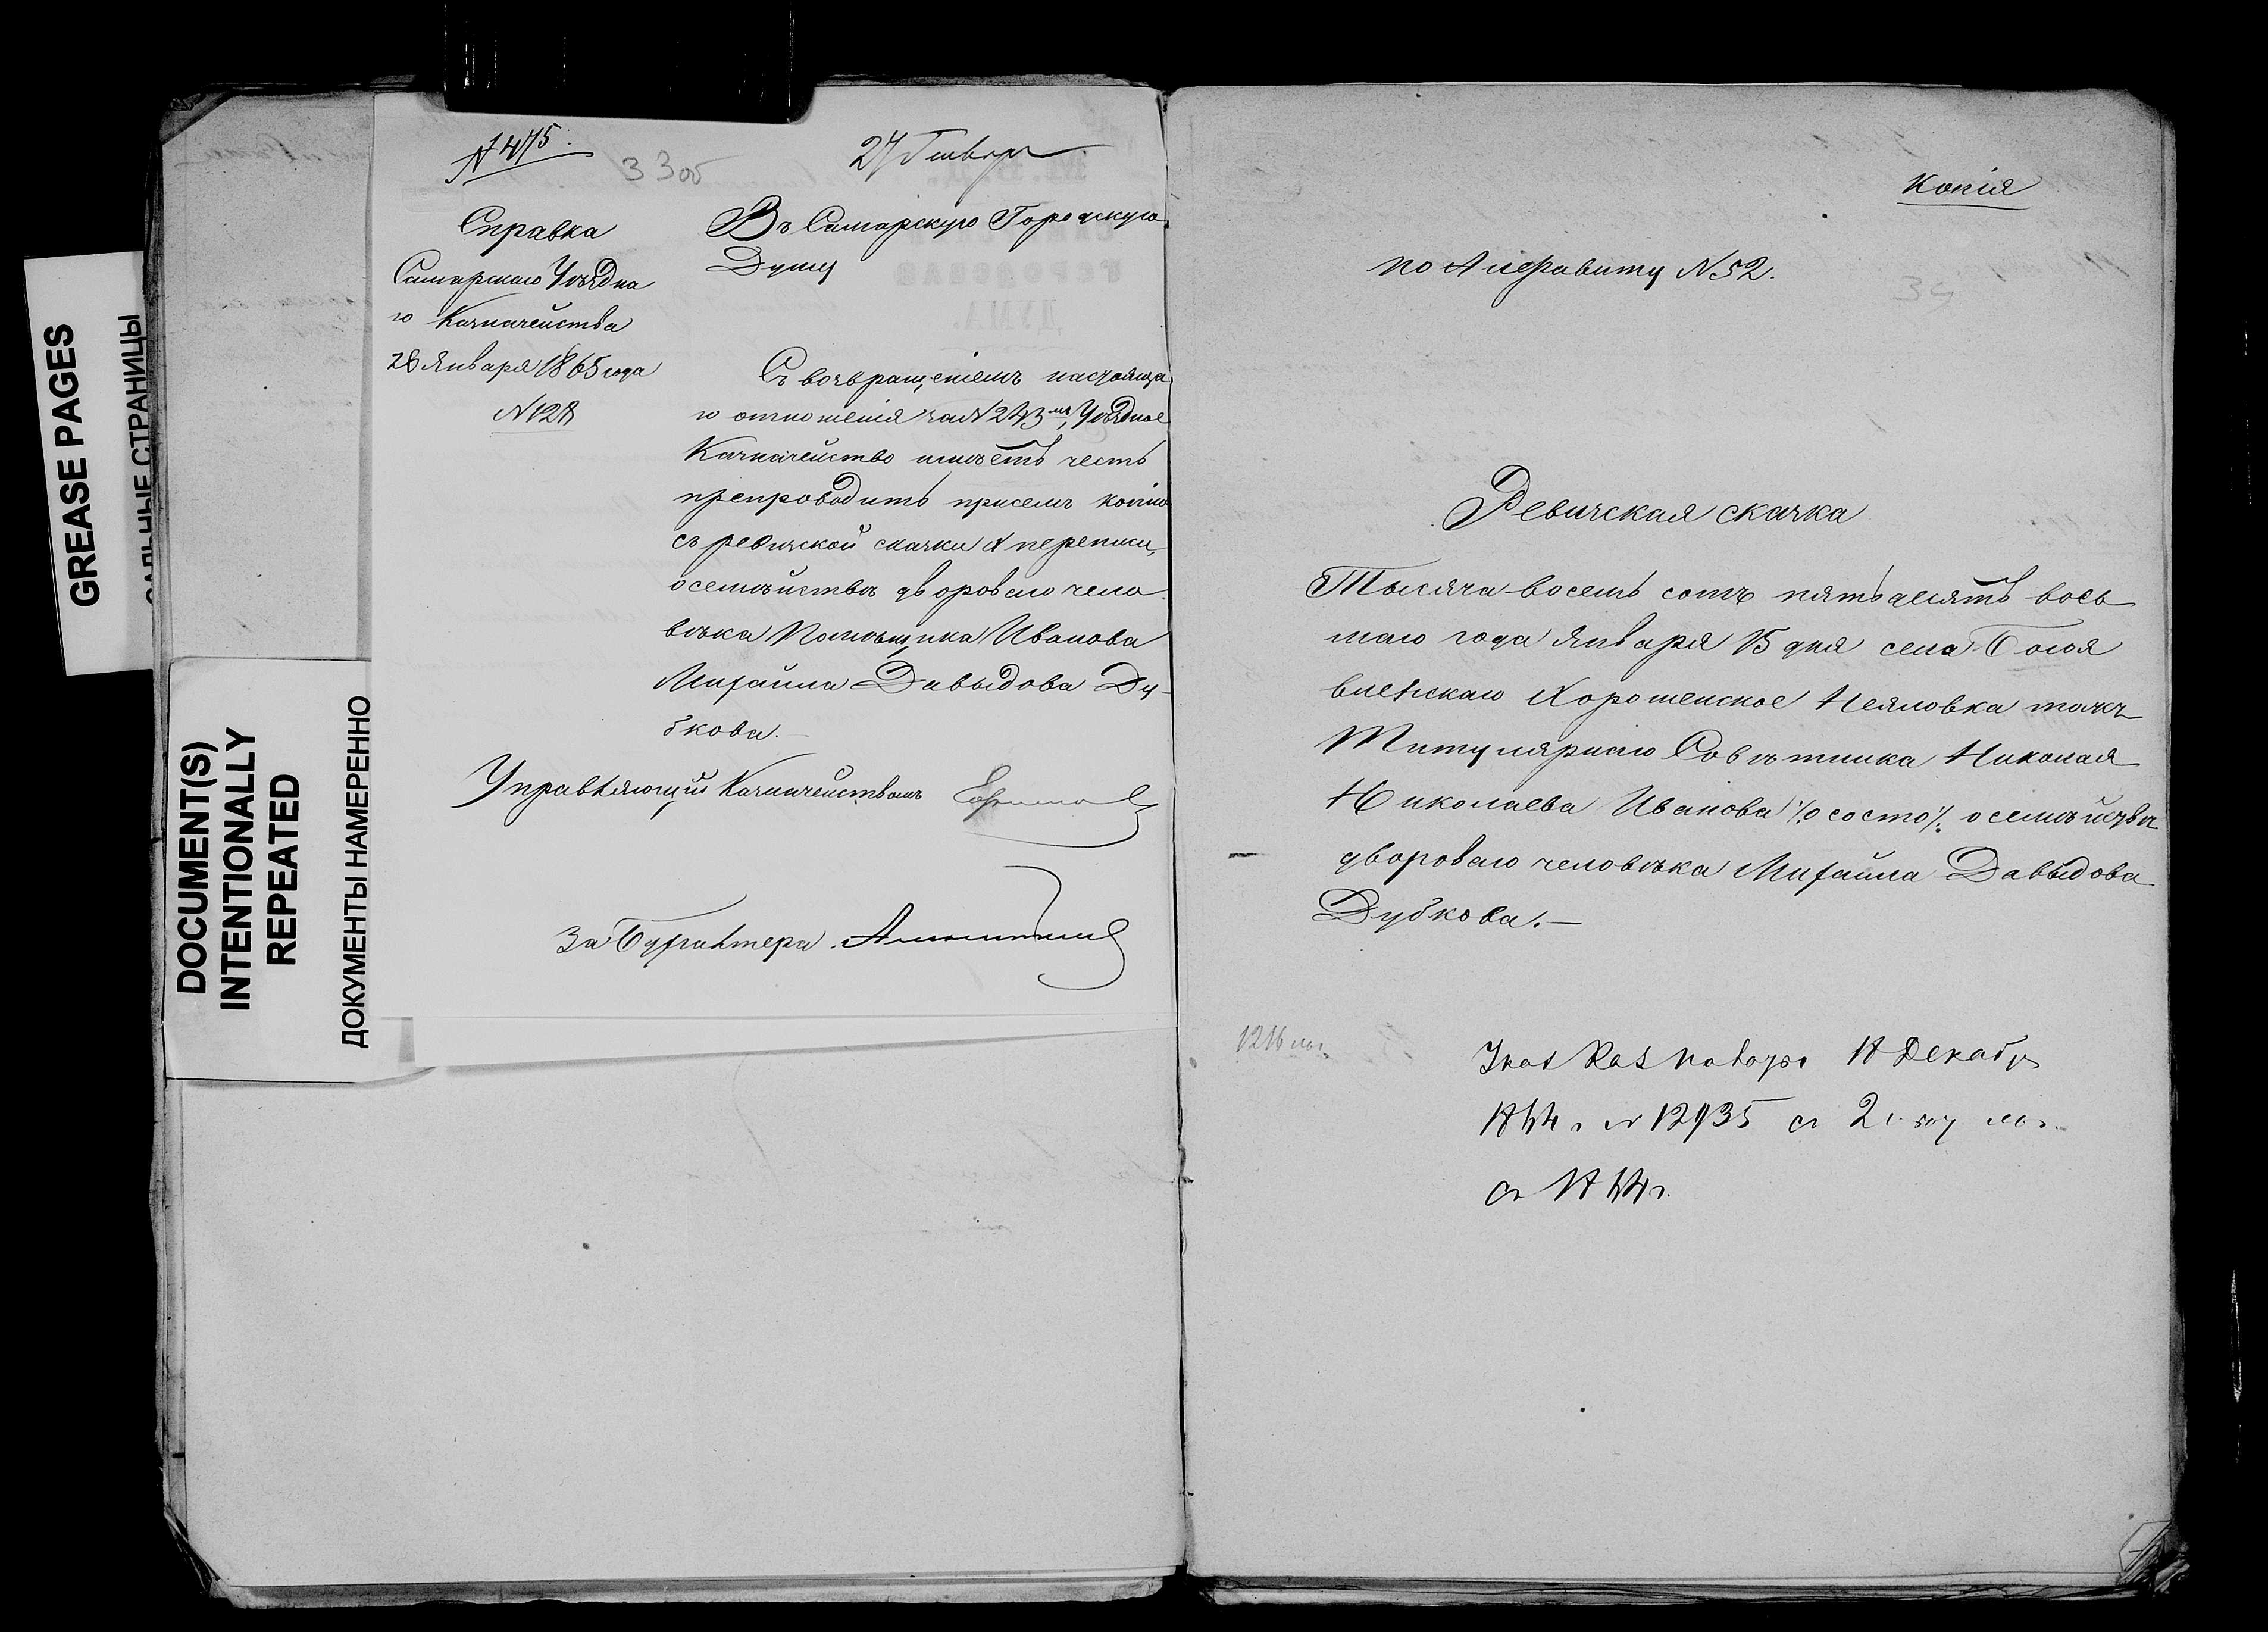 GREASE PAGES
САЛЬНЫЕ СТРАНИЦЫ
DOCUMENT(S)
INTENTIONALLY
REPEATED
ДОКУМЕНТЫ НАМЕРЕННО
N 475.
33об
27 Генвар
Справка
Самарскаго Уѣздна
го Казначейства
26 Января 1865 года
N 128
Въ Самарскую Городскую
Думу
Съ возвращеніемъ настояща
го отношенія за N 243мъ, Уѣздное
Казначейство имѣетъ честь
препроводить присемъ копію
съ ревизской сказки X переписи,
о семѣйствѣ двороваго чело
вѣка Помѣщика Иванова
Михайла Давыдова Ду-
бкова.
Управляющій Казначействомъ
За Бухгалтера
Копія
по Алфавиту N 52.
34
Ревизская сказка
Тысяча восемь сотъ пятьдесятъ вось
маго года Января 15 дня села Богоя
вленскаго Хорошенское Неяловка тожъ
Титулярнаго Совѣтника Николая
Николаева Иванова ·/. о состо ·/. о семѣйствѣ
двороваго человѣка Михайла Давыдова
Дубкова.—
18 Декабр
1864 г. N 12935 съ 2
съ 1864 г.